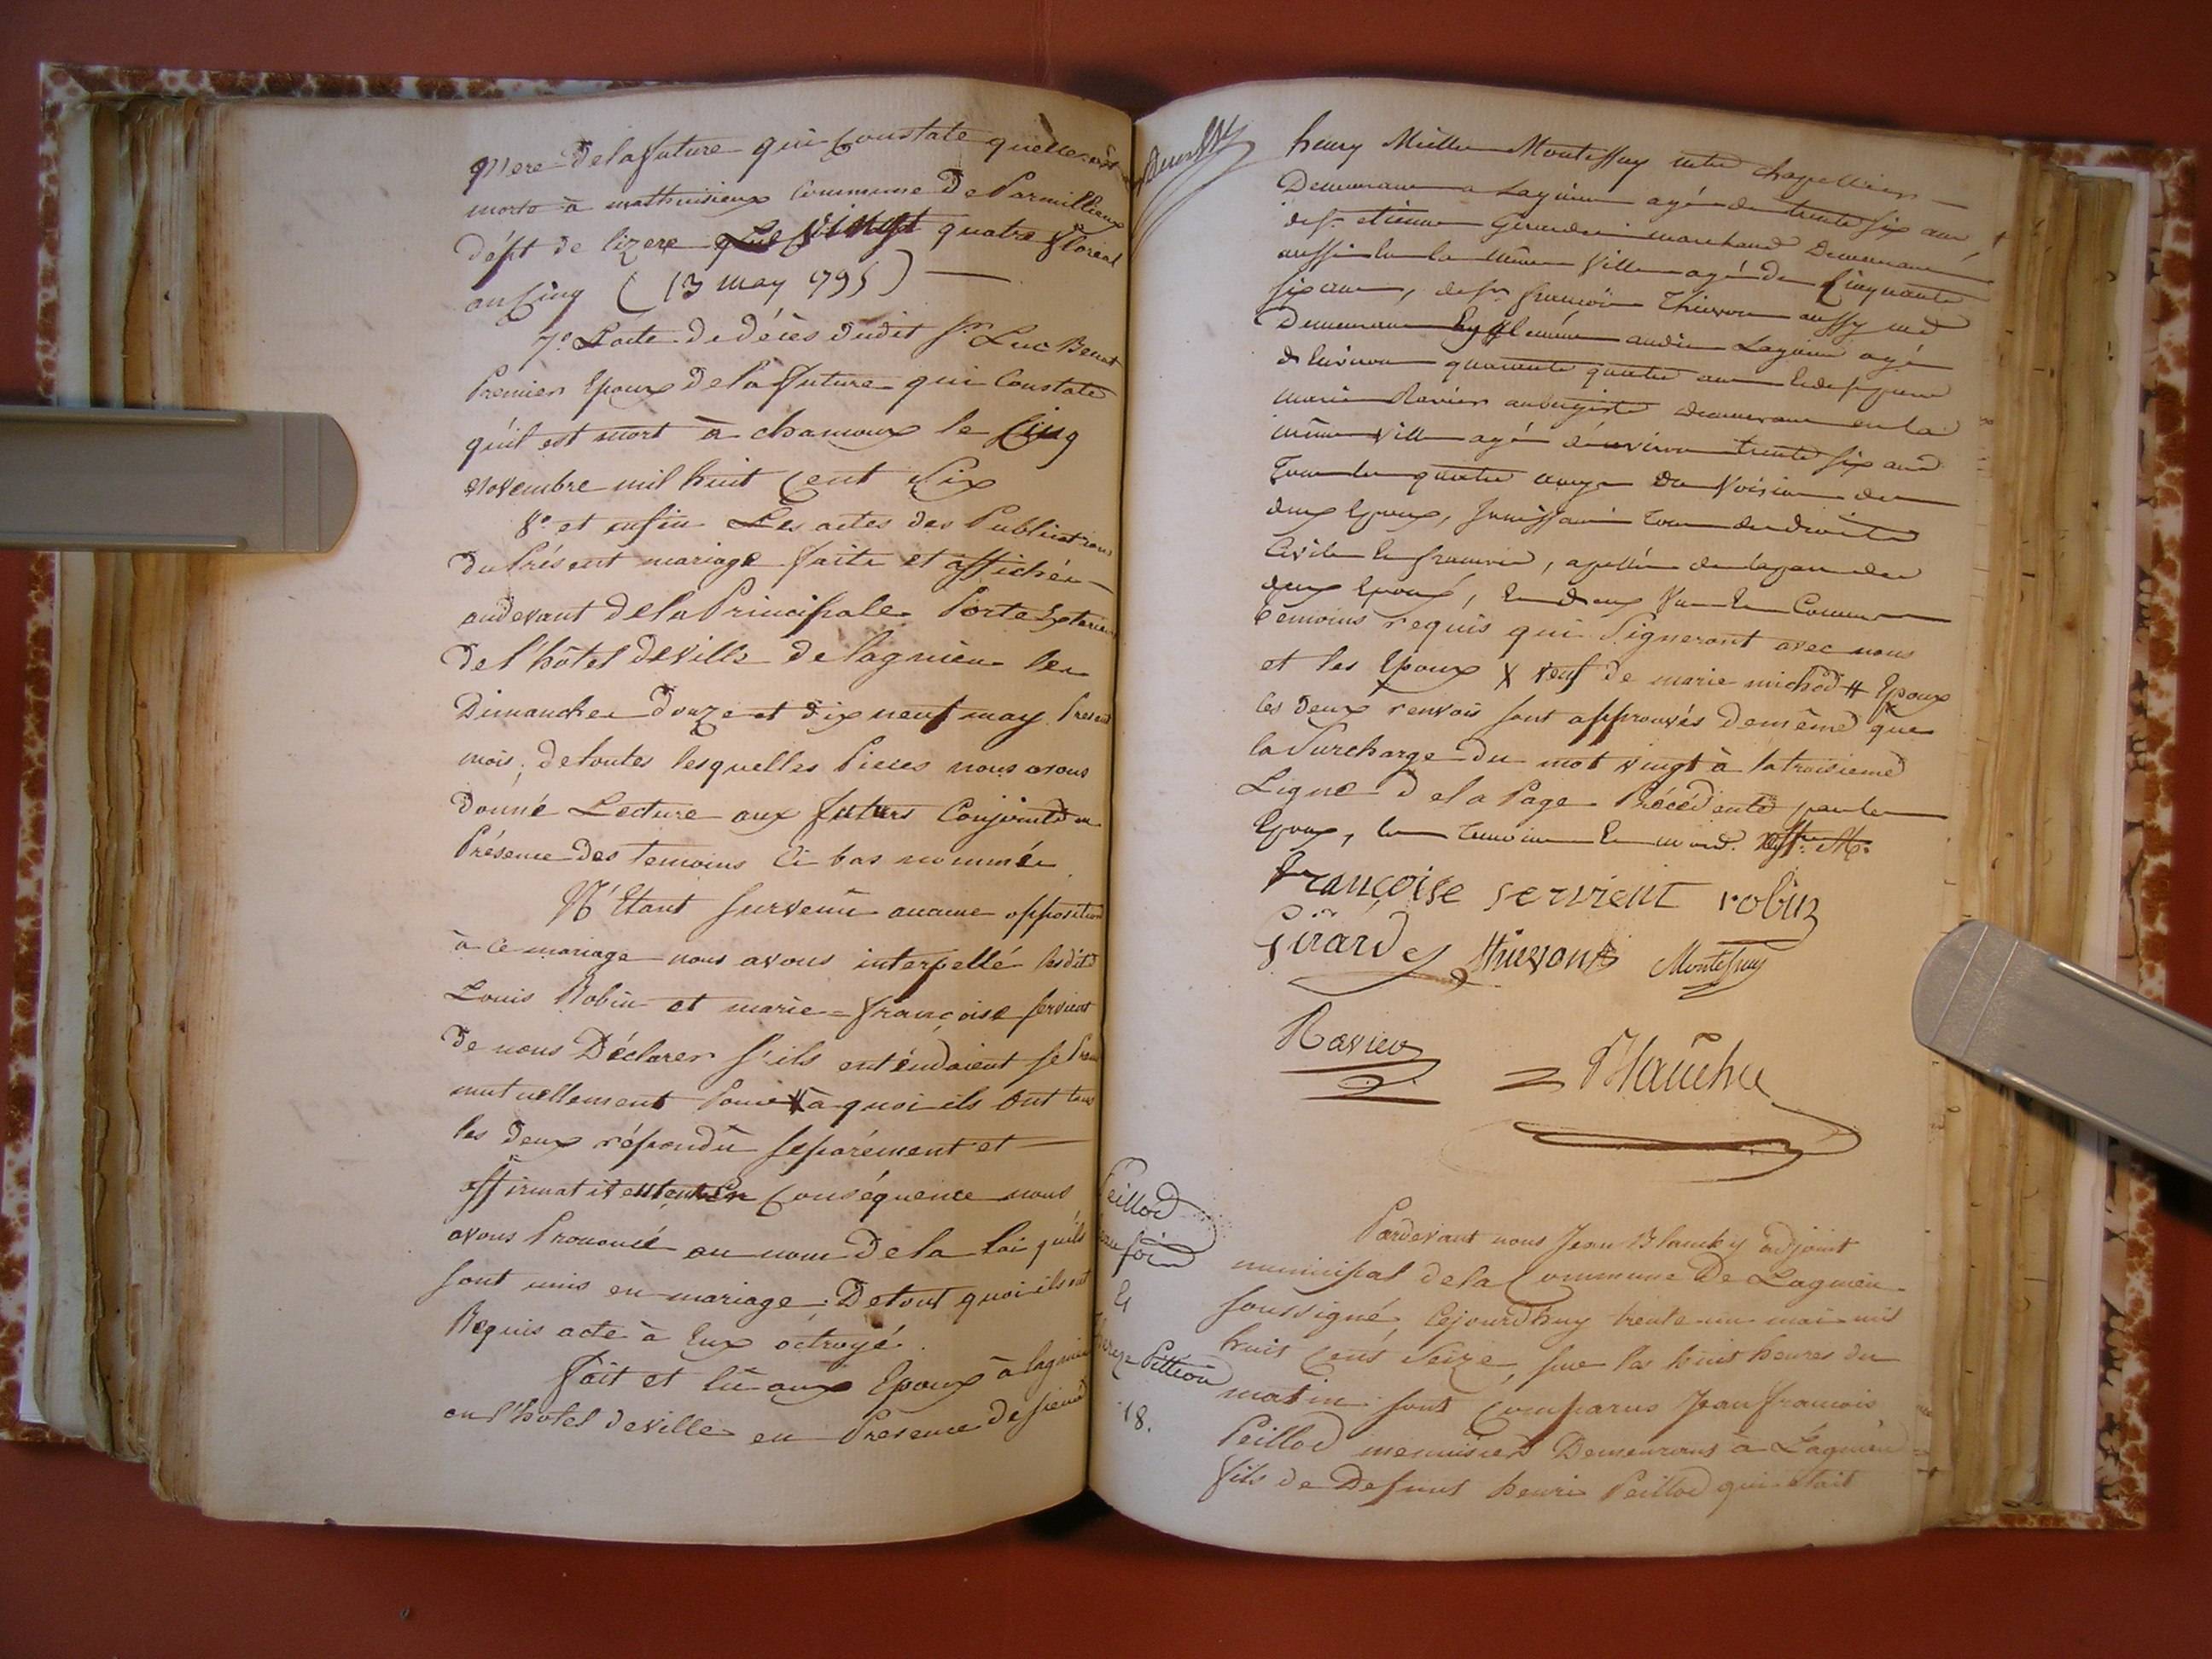 Mere de la future qui constate quelle est
morte à mathuisieux Commune de Parmillieux
dépt de lizere le vingt quatre floreal
an Cinq (13 may 1795) —
7º L'acte de décès dudit Sr. Luc Benet
Premier Epoux de la future qui Constate
qu'il est mort à chamoux le Cinq
Novembre mil huit Cent Six
8º et enfin Les actes des Publications
du Présent mariage faite et affichée
audevant de la Principale Porte Exterieure
de l'hôtel de Ville de lagnieu les
Dimanches douze et dix neuf may Present
mois; de toutes lesquelles Pieces nous avons
donné Lecture aux futurs Conjoints en
Présence des temoins Ci bas nommés
N'Etant survenü aucune opposition
à ce mariage nous avons interpellé lesdits
Louis Robin et marie=françoise Servient
de nous Déclarer s'ils entendoient se
mutuellement Pour # à quoi ils ont tous
les deux répondü separément et —
affirmativement, En Conséquence nous
avons Prononcé au nom de la Loi qu'ils
sont unis en mariage. De tout quoi ils ont
Requis acte à Eux octroyé.
Fait et lü aux Epoux à lagnieu
en l'hôtel de ville en Presence de sieurs
henry Montessuy chapellier
Demeurant a Lagnieu agé de trente six ans,
de Sr. etienne marchand Demeurant
aussi en la même Ville agé de Cinquante
six ans, de Sr. françois Thievon aussy md
Demeurant audit Lagnieu agé
d'Environ quarante quatre ans Et de Sr pierre
marie Ravier aubergiste demeurant en la
même Ville agé d'environ trente six ans
Tous les quatre amys ou Voisins des
deux Epoux, Jouissants tous des droits
Civils En france, apellés de la part des
deux Epoux,
témoins requis qui Signeront avec nous
et les Epoux X veuf de marie michod # Epoux
les deux renvois sont approuvés de même que
la Surcharge du mot vingt à la troisieme
Ligne de la Page Précédente par les
Epoux, les temoins Et nous.
françoise servient robin
Girard Thievon Montessuy
Ravier
Blanchy
Peillod
et
Pittion
18.
Pardevant nous Jean Blanchy adjoint
municipal de la Commune De Lagnieu
soussigné, Cejourdhuy trente un mai mil
huit Cent Seize, sur les huit heures du
matin sont Comparus Jean francois
Peillod menuisier Demeurant à Lagnieu
fils de Defunt henri Peillod qui étoit